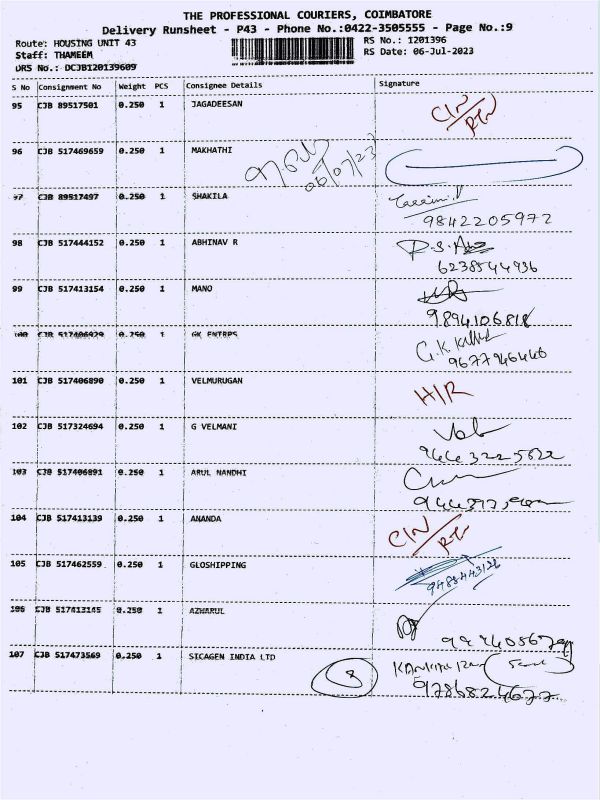 THE PROFESSIONAL COURIERS, COIMBATORE
Delivery Runsheet - P43 - Phone No.:0422-3505555 - Page No.:9
Route: HOUSING UNIT 43
RS No.: 1201396
Staff: THAMEEM
RS Date: 06-Jul-2023
DRS No.: DCJB120139609
S No Consignment No Weight PCS Consignee Details Signature
95 CJB 89517501 0.250 1 JAGADEESAN
96 CJB 517469659 0.250 1 MAKHATHI 06/07/23
97 CJB 89517497 0.250 1 SHAKILA
9842205972
98 CJB 517444152 0.250 1 ABHINAV R
6238544936
99 CJB 517413154 0.250 1 MANO
9894106818
100 CJB 517406929 0.250 1 GK ENTRPS G.K.
9677946446
101 CJB 517406890 0.250 1 VELMURUGAN H/R
102 CJB 517324694 0.250 1 G VELMANI
103 CJB 517406891 0.250 1 ARUL NANDHI
104 CJB 517413139 0.250 1 ANANDA
105 CJB 517462559 0.250 1 GLOSHIPPING
106 CJB 517413145 0.250 1 AZHARUL
107 CJB 517473569 0.250 1 SICAGEN INDIA LTD
8
9786824677